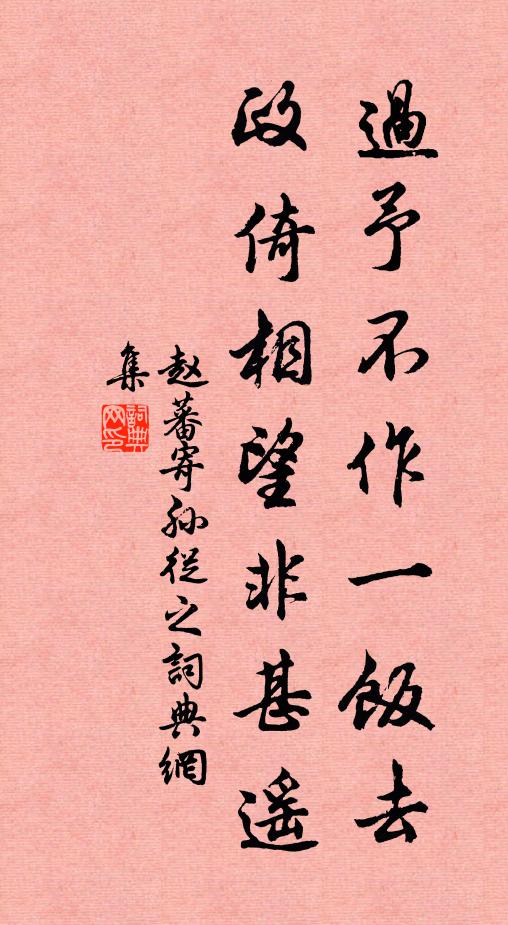 過予不作一飯去
政倚相望非甚遥
赵蕃寄孙從之詞典網
集
詞典
网印